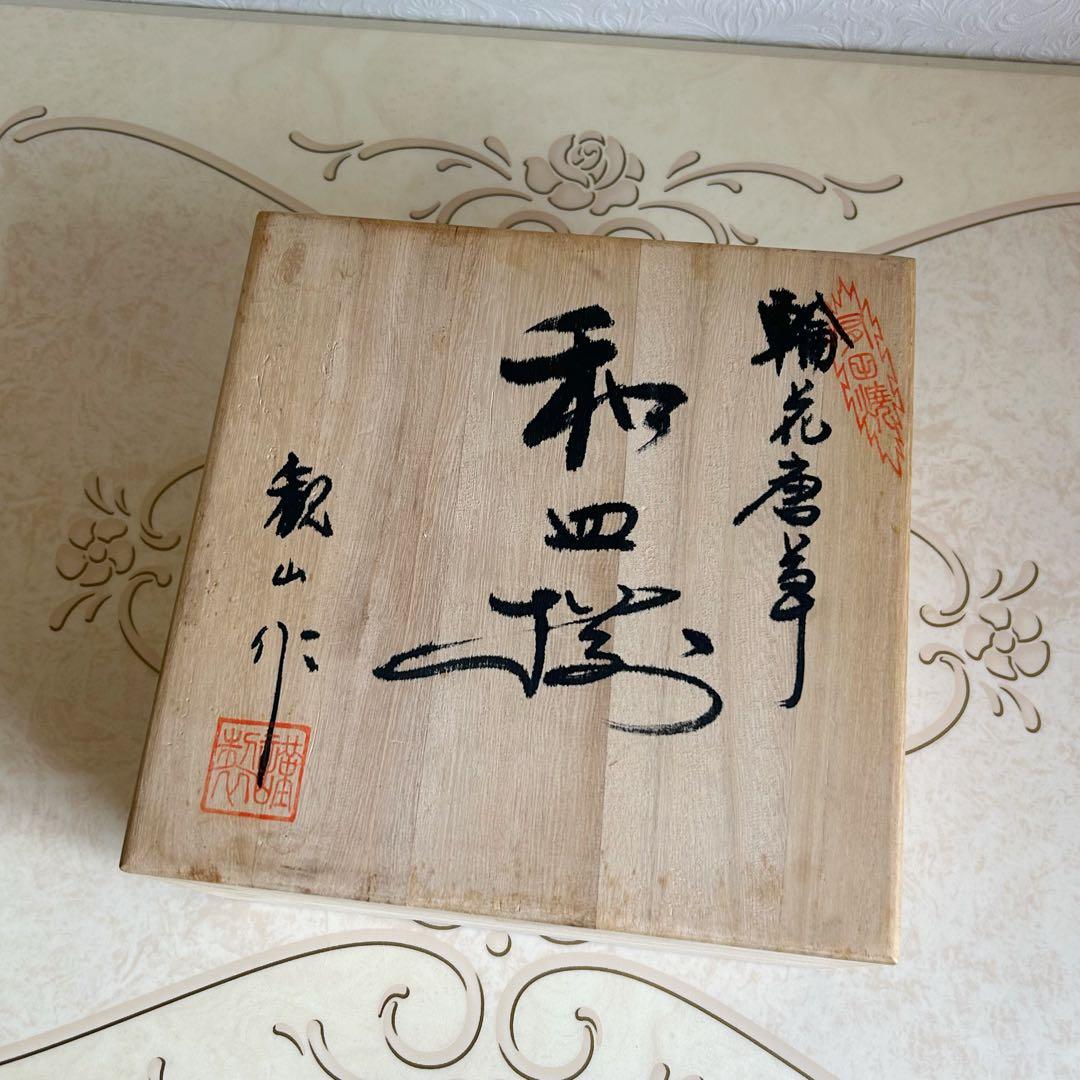 有田焼
輪花唐草
和皿揃
観山作
謹製